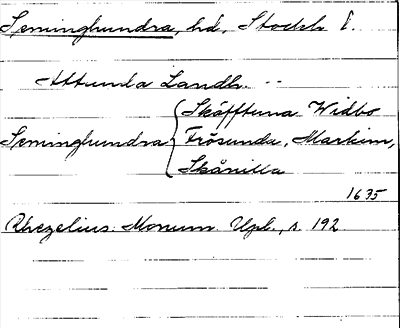 Seminghundra, hd, Stockh l.
Attunda Landh. --
Skäfftuna Widbo
Seminghundra Frösunda, Markim,
Skånilla
1635
Rhezelius: Monum. Upl., s. 192